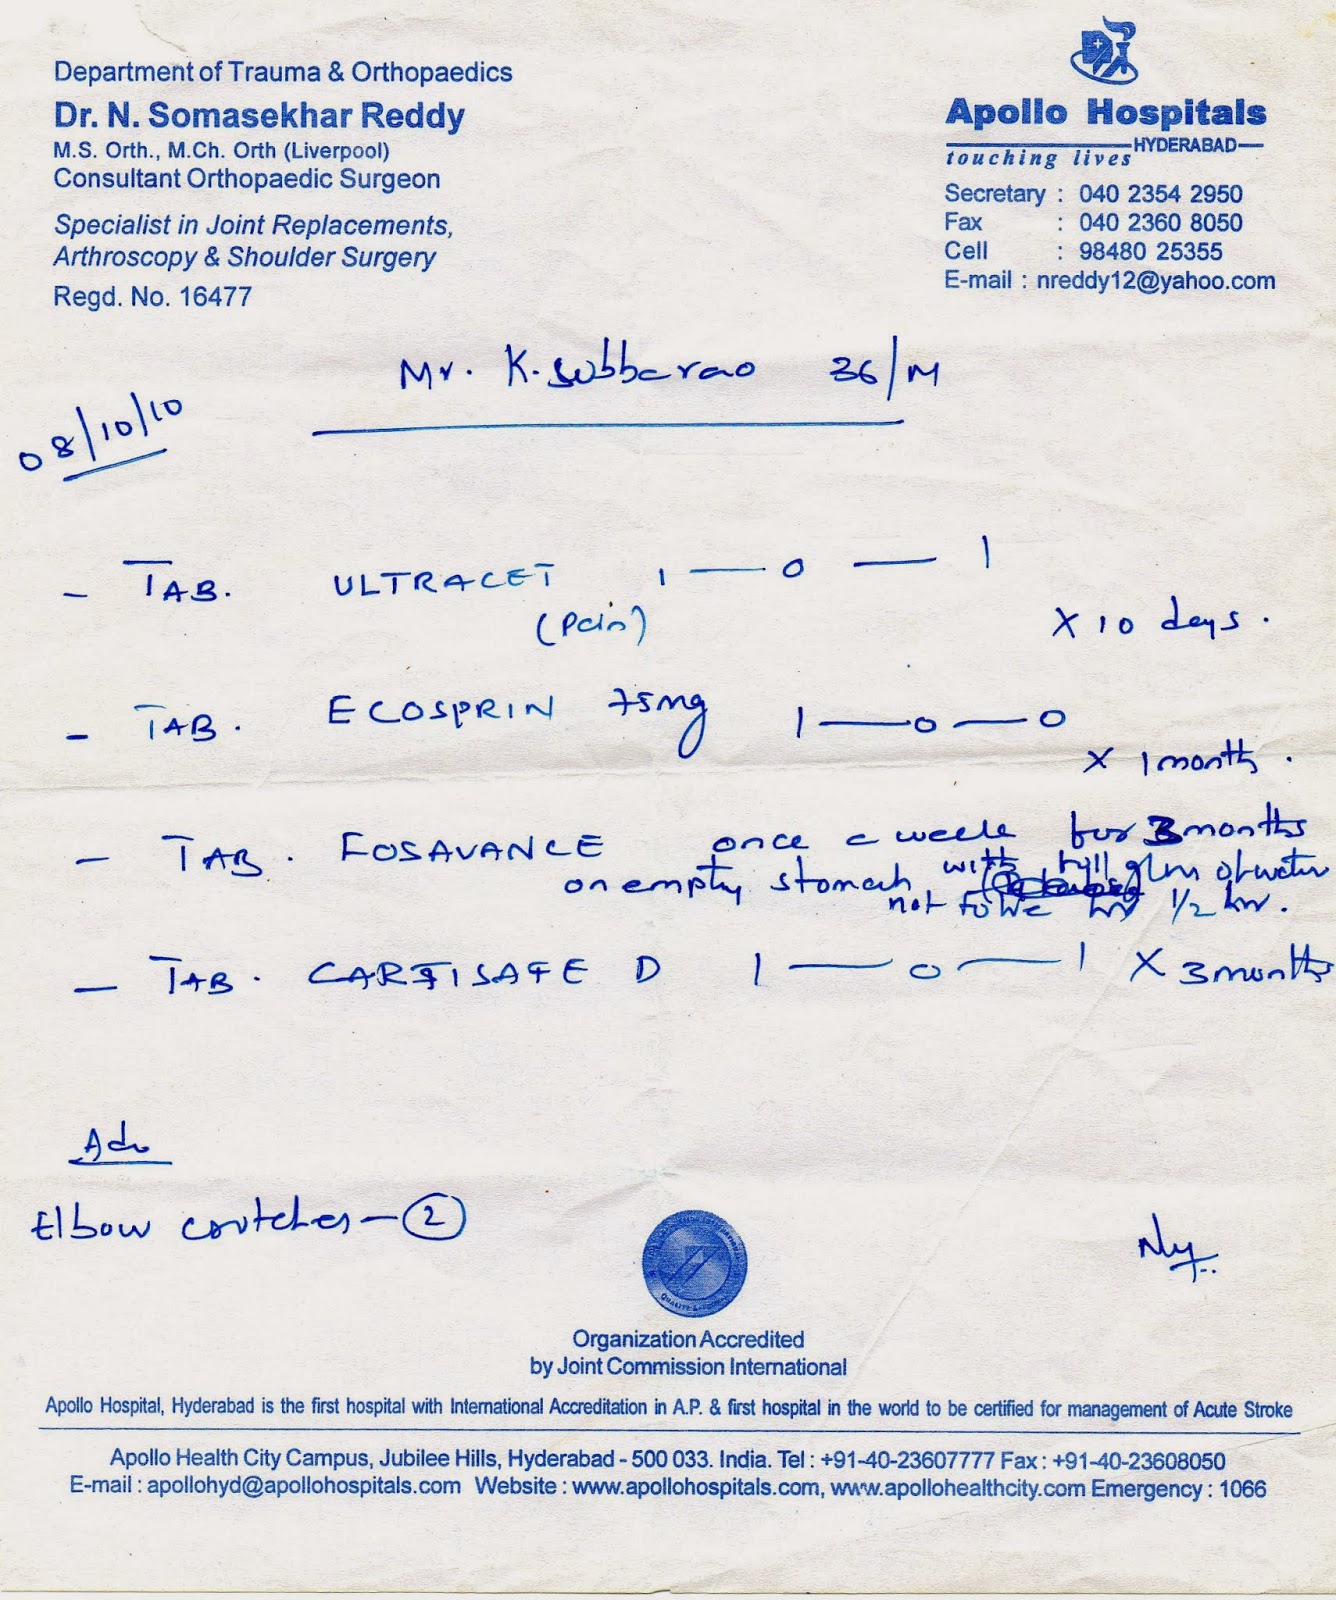 Department of Trauma & Orthopaedics
Dr. N. Somasekhar Reddy
M.S. Orth., M.Ch. Orth (Liverpool)
Consultant Orthopaedic Surgeon
Specialist in Joint Replacements,
Arthroscopy & Shoulder Surgery
Regd. No. 16477
Apollo Hospitals
HYDERABAD
touching lives
Secretary : 040 2354 2950
Fax : 040 2360 8050
Cell : 98480 25355
E-mail : nreddy12@yahoo.com
Mr. K. Subbarao 36/M
08/10/10
- TAB. ULTRACET 1 — 0 — 1
(Pain) X 10 days.
- TAB. ECOSPRIN 75mg 1 — 0 — 0
X 1 month.
- TAB. FOSAVANCE once a week for 3 months
on empty stomach with full glass of water
not to lie for 1/2 hr.
- TAB. CARTISAFE D 1 — 0 — 1 X 3 months
Adv
Elbow crutches - 2
Organization Accredited
by Joint Commission International
Apollo Hospital, Hyderabad is the first hospital with International Accreditation in A.P. & first hospital in the world to be certified for management of Acute Stroke
Apollo Health City Campus, Jubilee Hills, Hyderabad - 500 033. India. Tel : +91-40-23607777 Fax : +91-40-23608050
E-mail : apollohyd@apollohospitals.com Website : www.apollohospitals.com, www.apollohealthcity.com Emergency : 1066